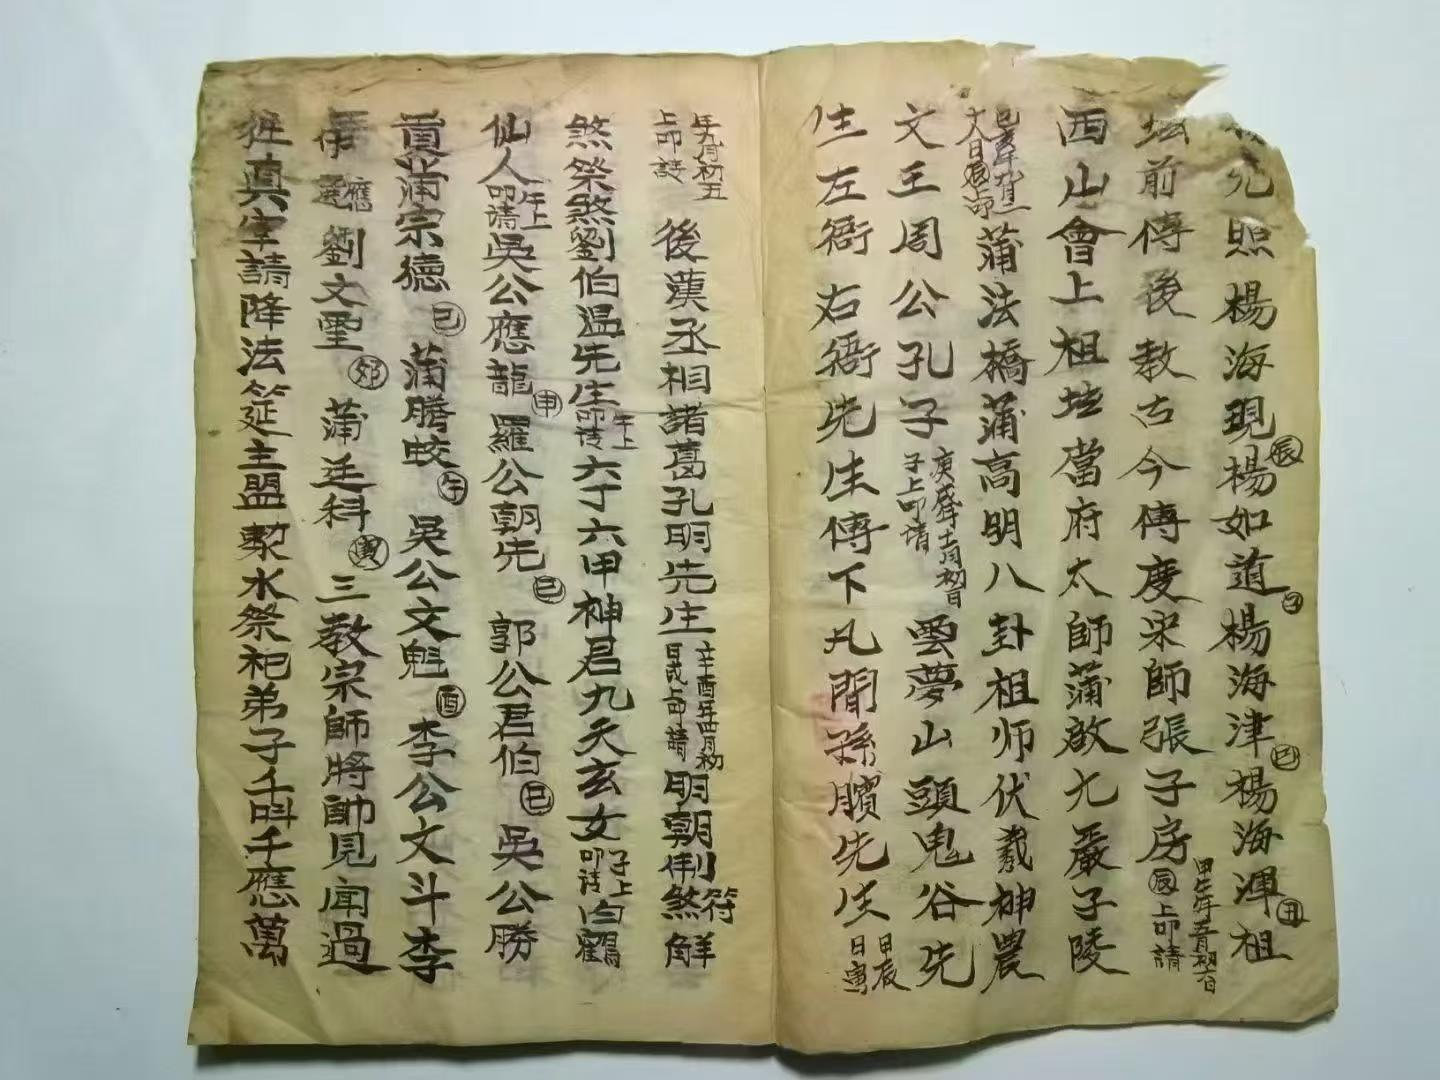 光照楊海現楊㊉辰如道㊉子楊海津㊉巳楊海渾㊉丑祖
壇前傳後教古今傳度宋師張子房㊉辰上叩請
西山會上祖壇當府太師蒲啟九嚴子陵
蒲法橋蒲高明八卦祖师伏羲神農
文王周公孔子雲夢山頭鬼谷先
生左衙右衙先生傳下凡間孫臏先生甲辰日寅
年九月初五上叩請後漢丞相諸葛孔明先生辛酉年四月初日戌上叩請明朝制煞符解
煞祭煞劉伯温先生午上叩请六丁六甲神君九天玄女子上叩请白鶴
仙人午上叩请吳公應龍㊉申羅公朝先㊉巳郭公君伯㊉巳吳公勝
道蒲宗德㊉巳蒲勝蛟㊉午吳公文魁㊉酉李公文斗李
應選劉文聖㊉卯蒲廷科㊉寅三教宗師將帥見闻過
往真宰請降法筵主盟敷水祭祀弟子千叫千應萬